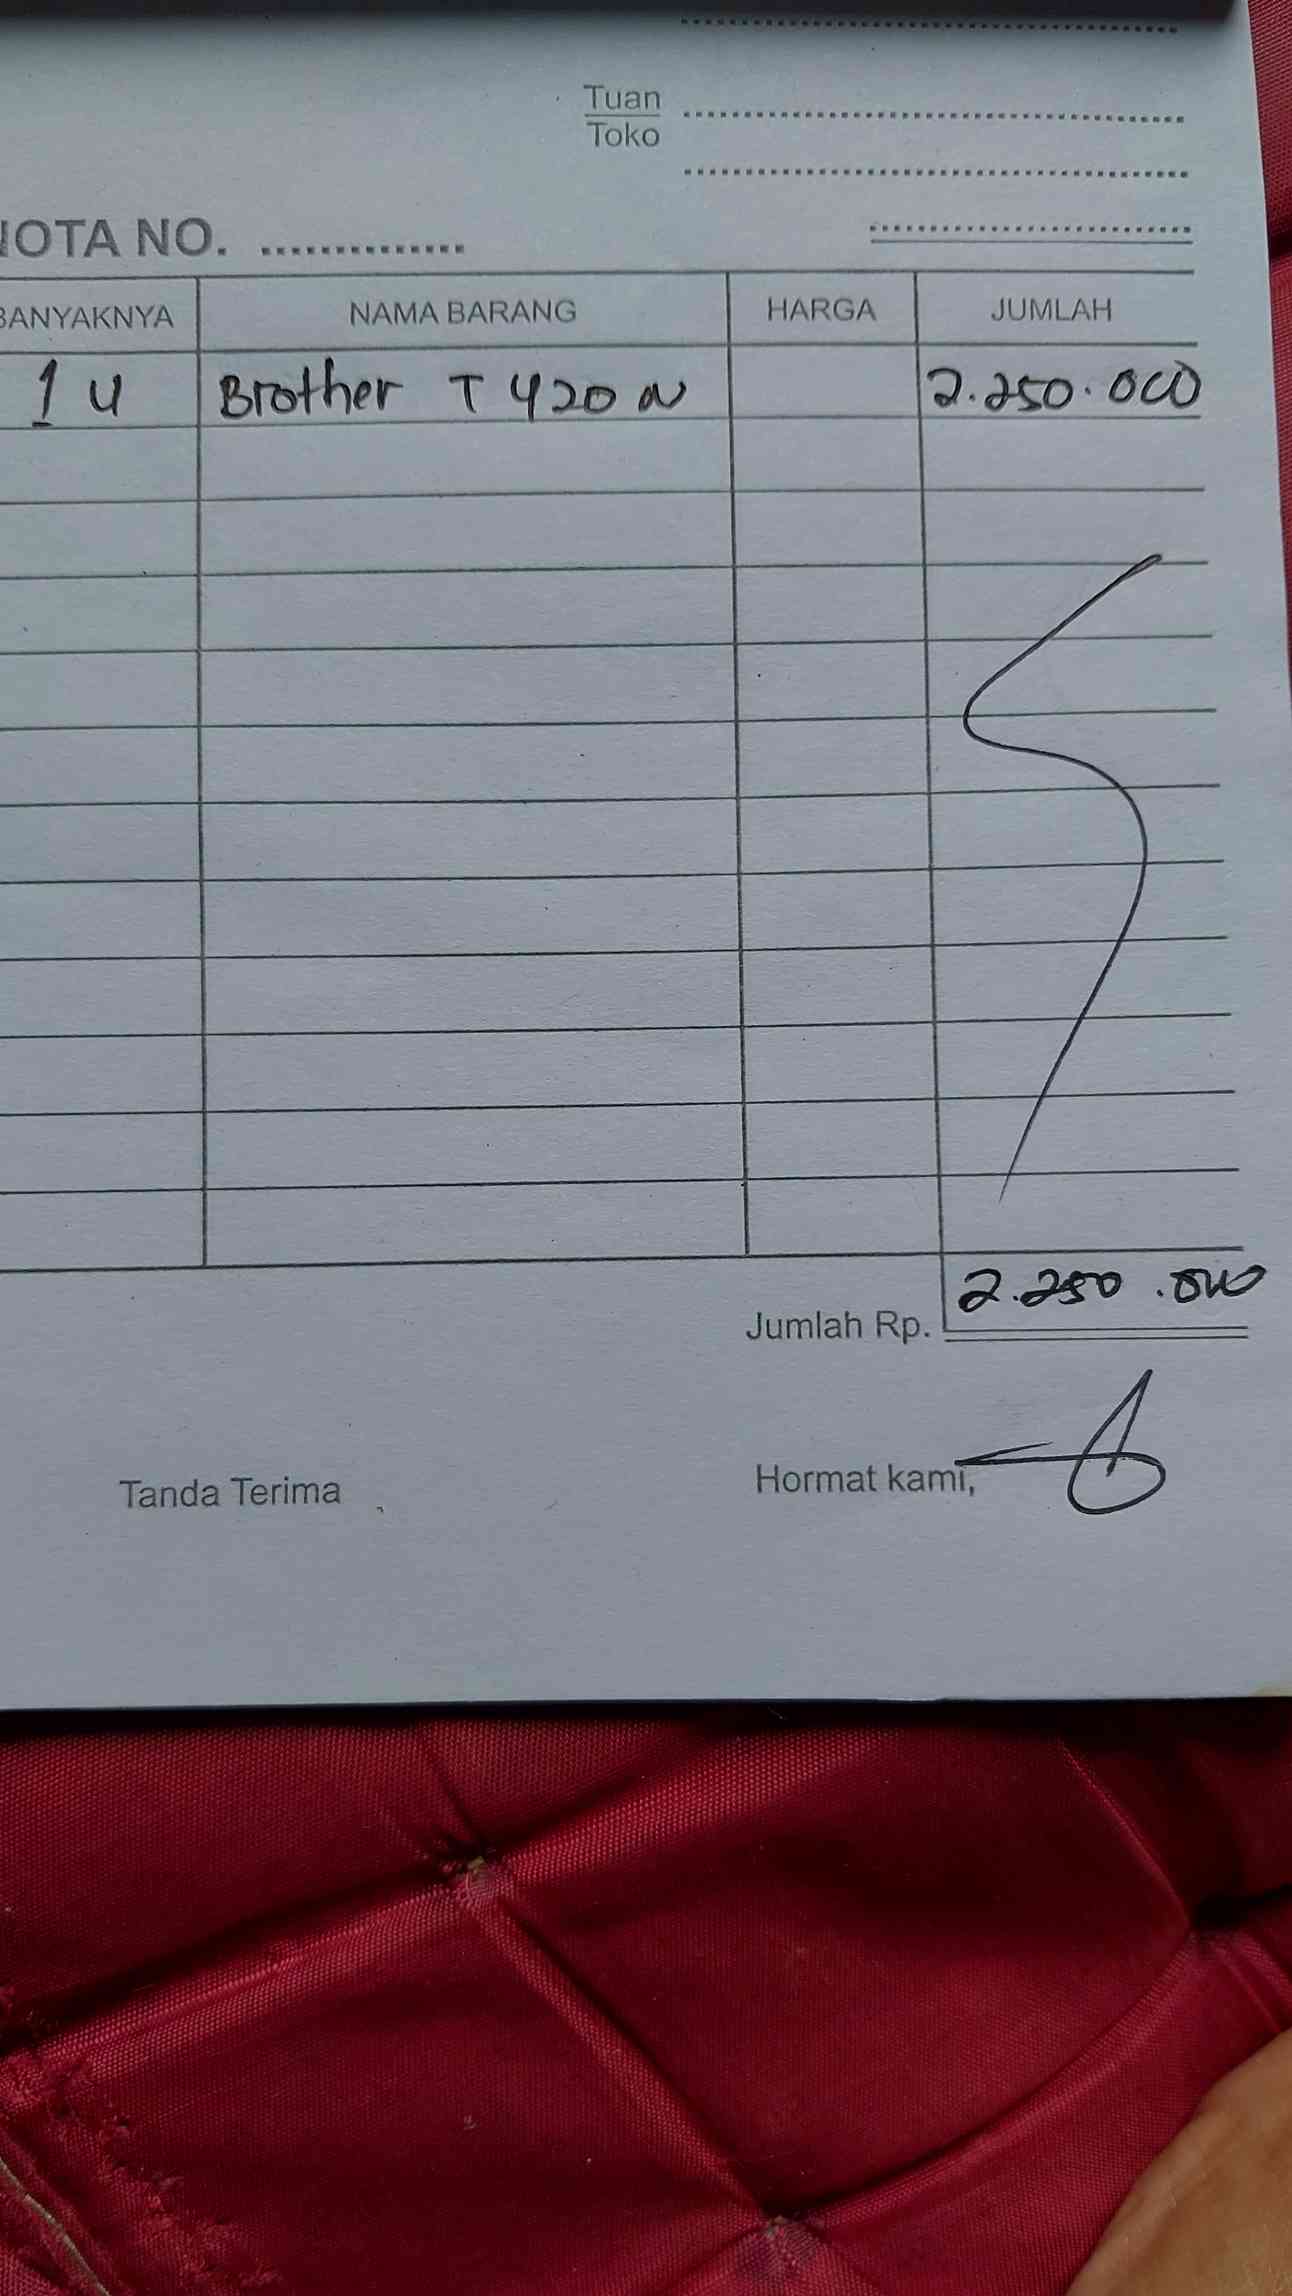 Tuan
Toko
NOTA NO.
BANYAKNYA NAMA BARANG HARGA JUMLAH
1 U Brother T 420 W 2.250.000
Jumlah Rp. 2.250.000
Tanda Terima Hormat kami,